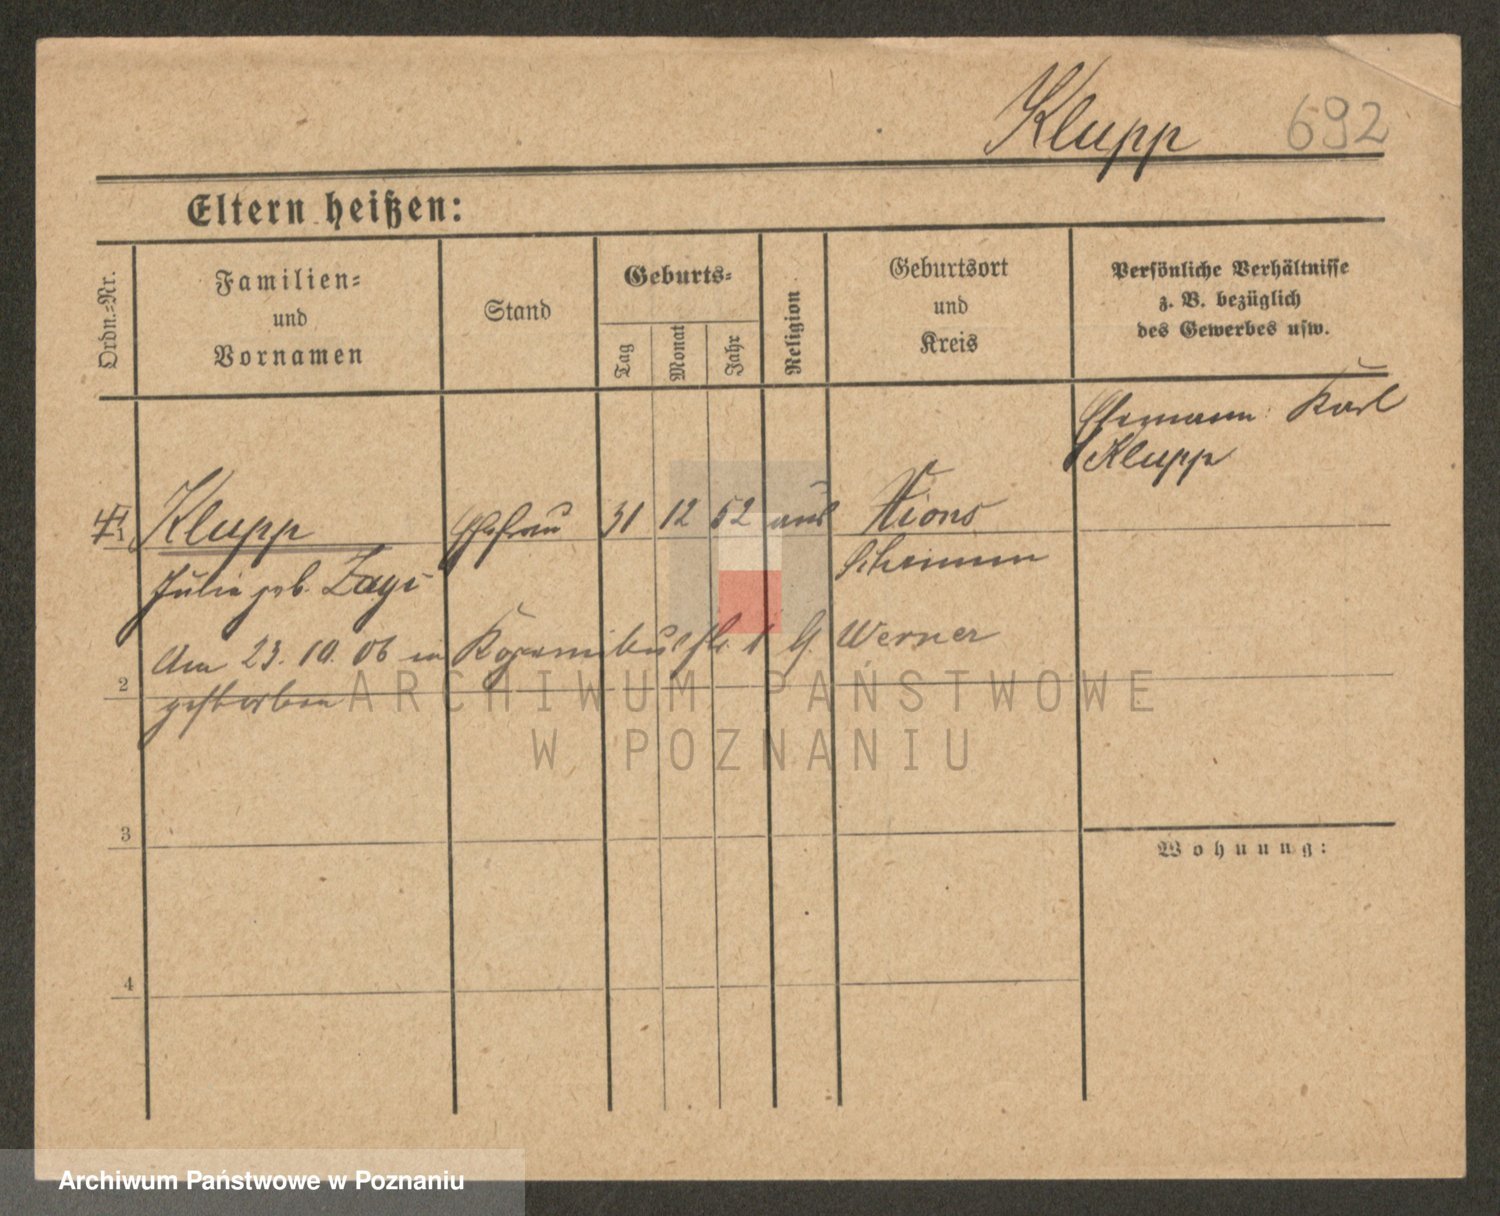 Klupp 692
Eltern heißen:
Ordn.-Nr.
Familien-
und
Vornamen
Stand
Geburts-
Tag
Monat
Jahr
Religion
Geburtsort
und
Kreis
Persönliche Verhältnisse
z. B. bezüglich
des Gewerbes usw.
Ehemann: Karl
Klupp
Klupp Ehefrau 31 12 52 aus Xions
Julia geb. Schrimm
Am 23. 10. 06 in G. Werner
gestorben
2
3
4
Wohnung:
ARCHIWUM PAŃSTWOWE
W POZNANIU
Archiwum Państwowe w Poznaniu